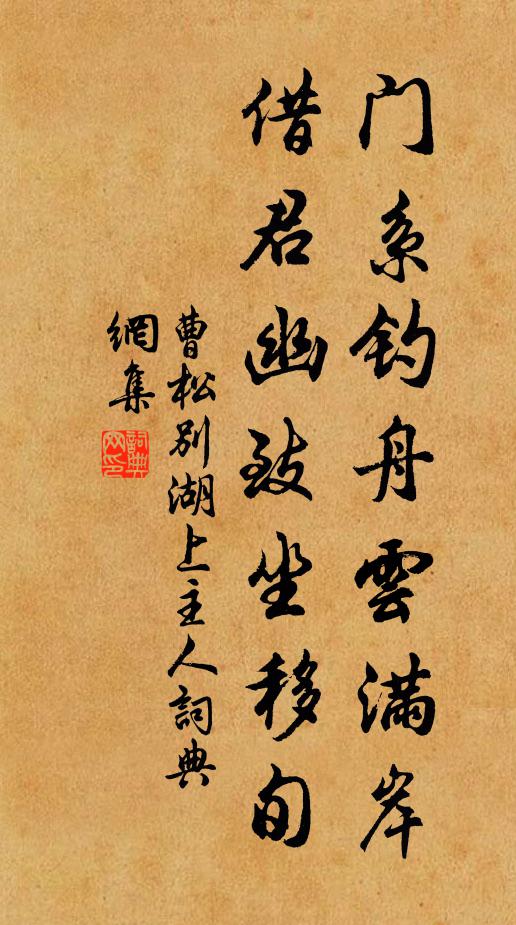 门系钓舟雲满岸
借君幽致坐移旬
曹松别湖上主人詞典
網集
詞典
网印